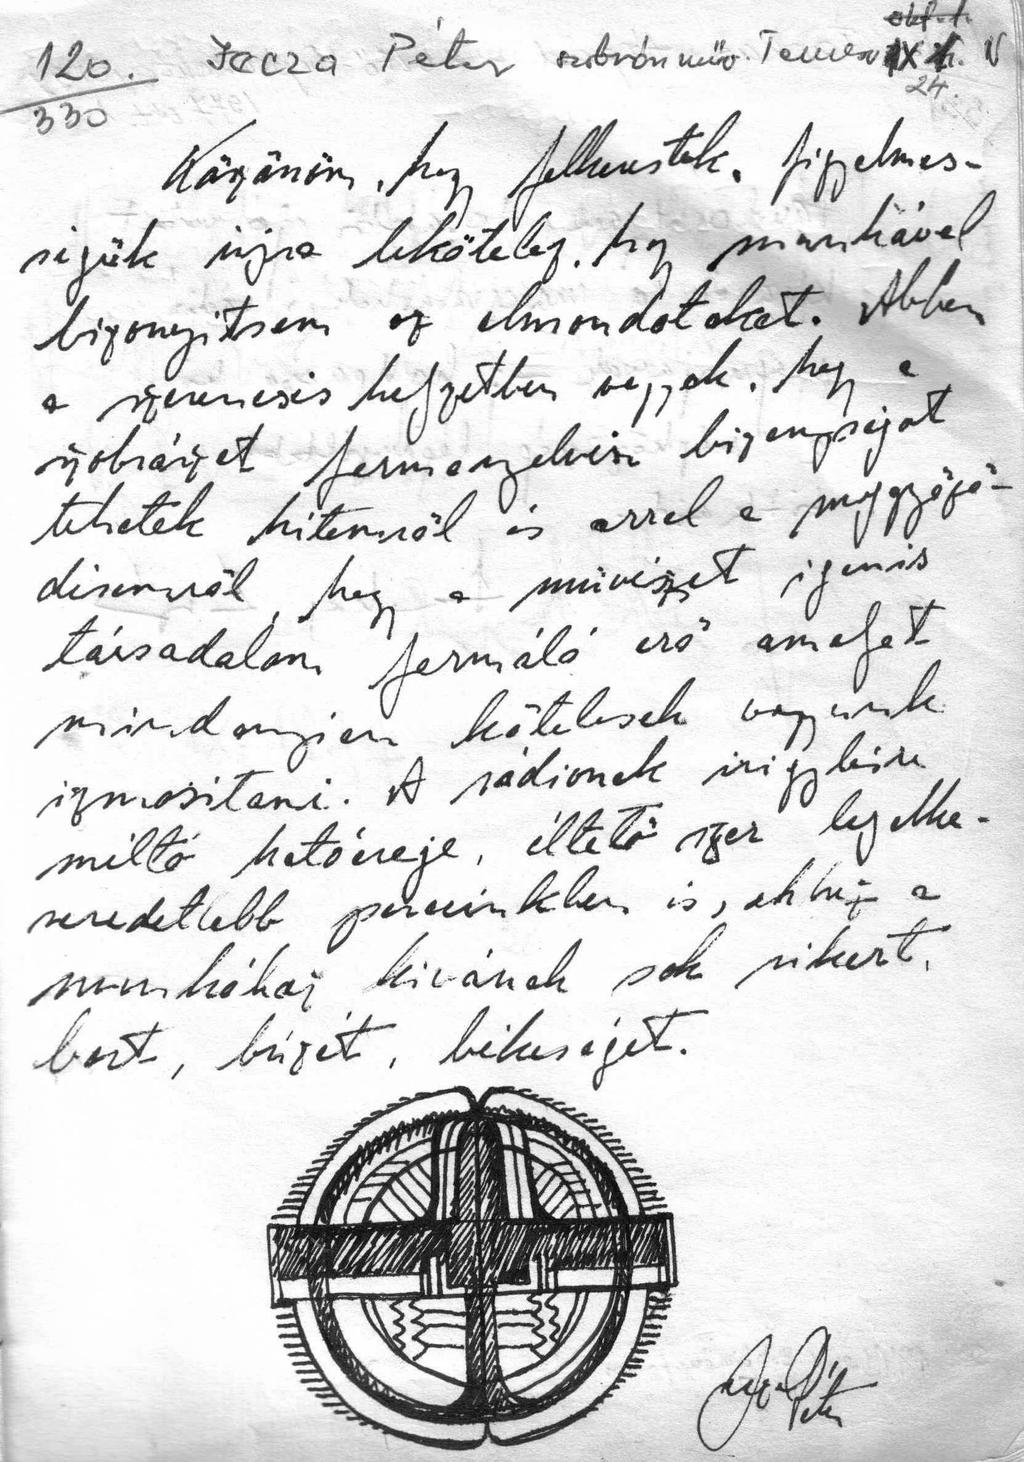 120. Jecza Péter szobrászműv. Temesv
330
IX. N
24.
Köszönöm, hogy felkerestek, figyelmes-
ségük újra lekötelez, hogy munkával
bizonyitsam az elmondotakat. Abban
a szerencsés helyzetben vagyok, hogy a
szobrászat formanyelvén bizonyságot
tehetek hitemről és arról a meggyőző-
désemről, hogy a művészet igenis
társadalom formáló erő amelyet
mindanyian kötelesek vagyunk
izmositani. A rádionak irigylésre
méltó hatóereje, éltető szer legelke-
seredetebb perceinkben is, ehhez a
munkához kivánok sok sikert,
bort, búzát, békeséget.
Jecza Péter